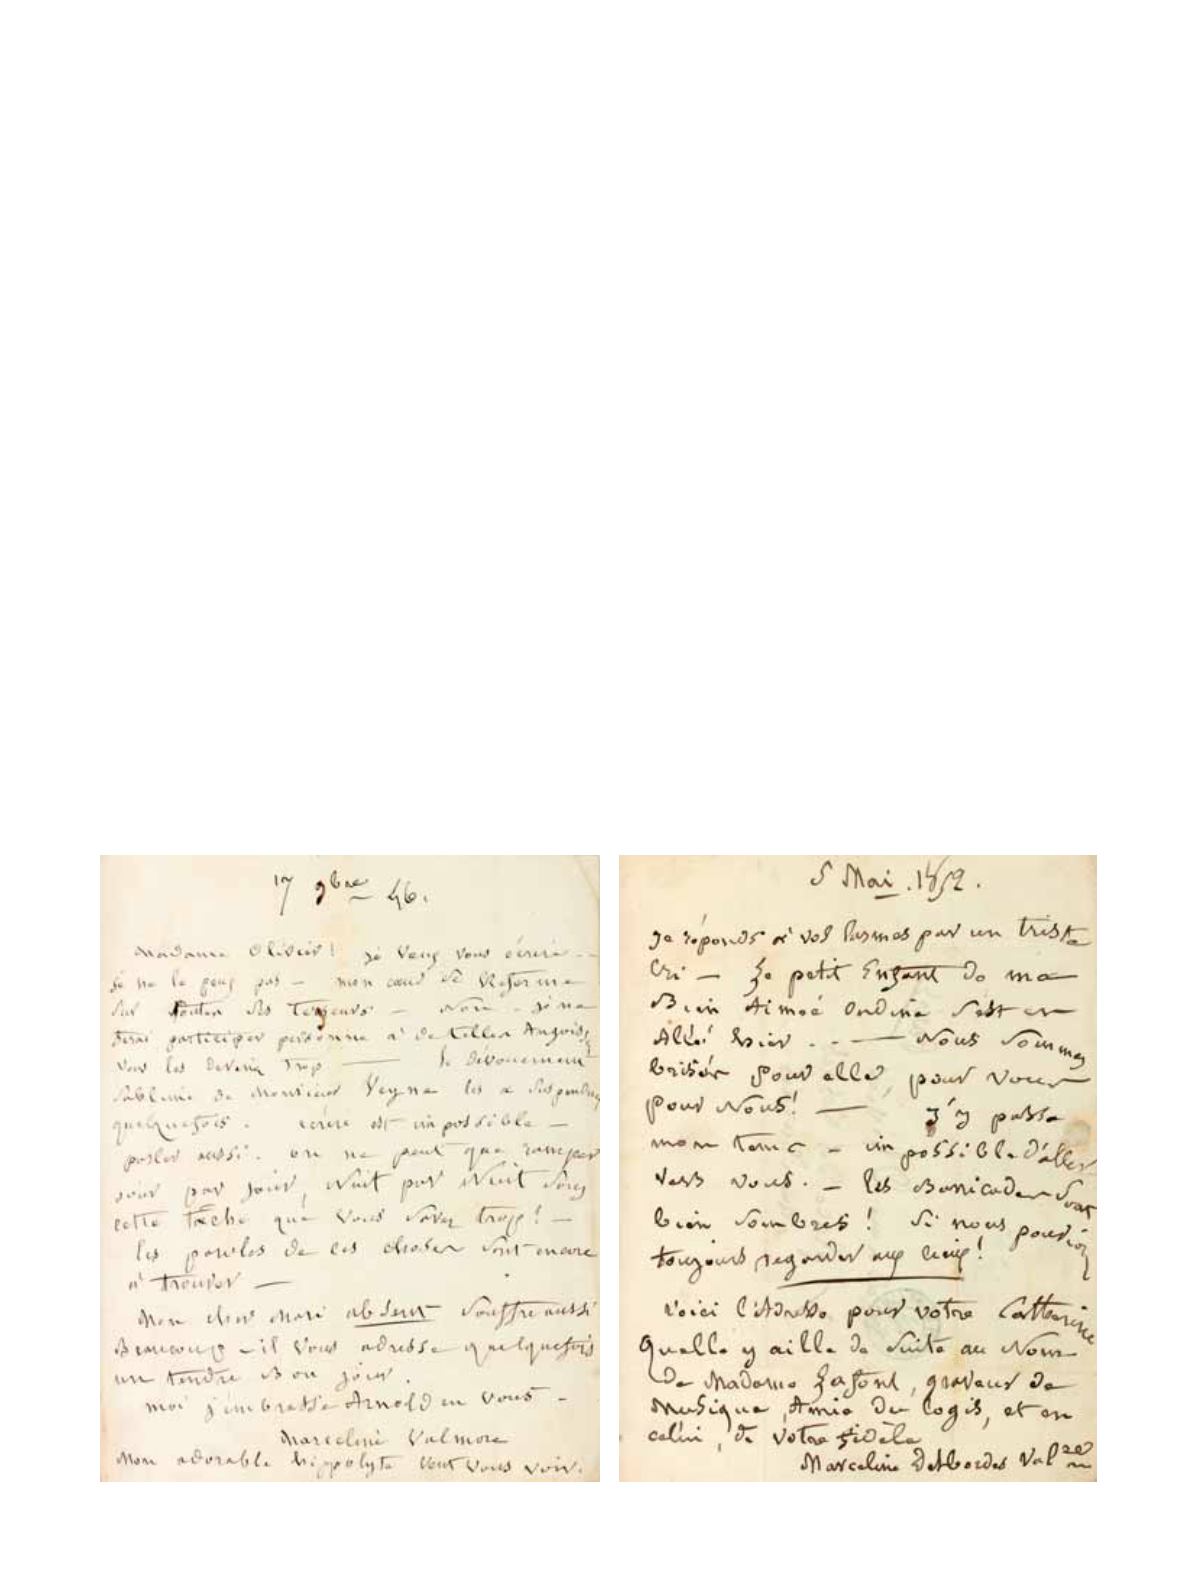 17 9bre 46.
Madame Olivier! je veux vous écrire --
je ne le peux pas — mon cœur se referme
sur toutes ses terreurs — Non - je ne
ferai participer personne à de telles Angoisses
vous les devinez trop — le dévouement
sublime de Monsieur Veyne les a suspendues
quelquefois. écrire est impossible —
parler aussi. on ne peut que ramper
jour par jour, Nuit par Nuit sous
cette tâche que vous savez trop! —
les paroles de ces choses sont encore
à trouver —
Mon cher Mari absent souffre aussi
Beaucoup — il vous adresse quelquefois
un tendre Bonjour.
moi j'embrasse Arnold en vous -
Marceline Valmore
Mon adorable hippolyte veut vous voir.
5 Mai .1852.
Je réponds à vos larmes par un triste
Cri — Le petit Enfant de ma
Bien Aimée Ondine s'est en
Allé hier . . — Nous sommes
brisés pour elle, pour vous
pour Nous! — J'y passe
mon tems — impossible d'aller
vers vous. — les Barricades sont
bien sombres! Si nous pouvions
toujours regarder aux cieux!
Voici l'Adresse pour votre Catherine
Quelle y aille de suite au Nom
de Madame Lafont, graveur de
Musique, Amie du logis, et en
celui, de votre fidèle
Marceline Desbordes Valmore